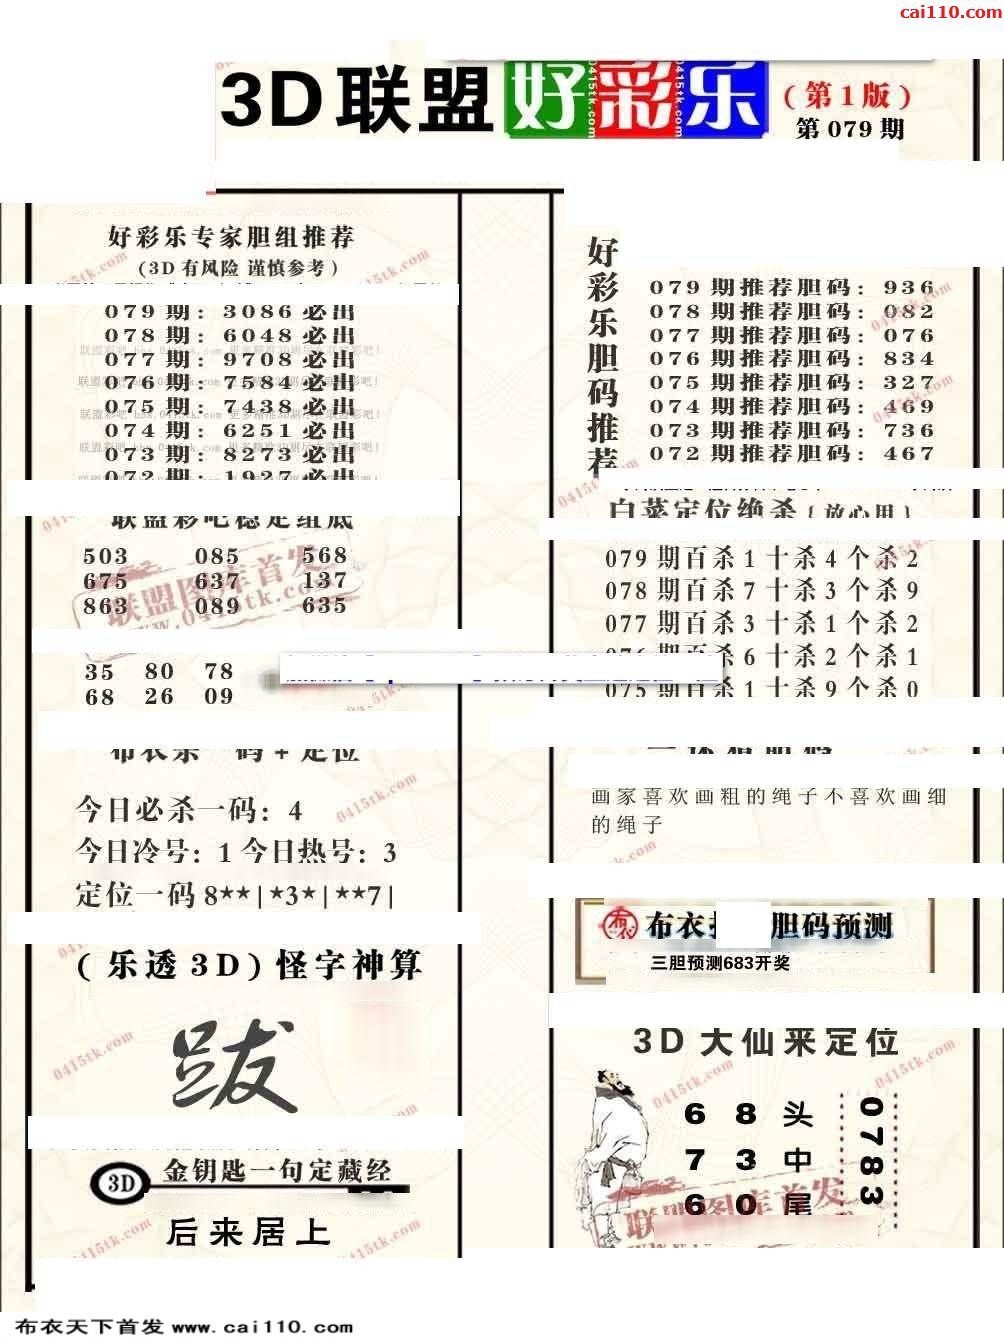 cai110.com
3D联盟好彩乐
(第1版)
第079期
好彩乐专家胆组推荐
(3D有风险 谨慎参考)
079期: 3086必出
078期: 6048必出
077期: 9708必出
076期: 7584必出
075期: 7438必出
074期: 6251必出
073期: 8273必出
072期: 1927必出
联盟彩吧稳定组底
503 085 568
675 637 137
863 089 635
35 80 78
68 26 09
布衣杀一码+定位
今日必杀一码: 4
今日冷号: 1 今日热号: 3
定位一码 8**|*3*|**7|
(乐透3D)怪字神算
跋
3D 金钥匙一句定藏经
后来居上
好彩乐胆码推荐
079期推荐胆码: 936
078期推荐胆码: 082
077期推荐胆码: 076
076期推荐胆码: 834
075期推荐胆码: 327
074期推荐胆码: 469
073期推荐胆码: 736
072期推荐胆码: 467
白菜定位绝杀{放心用}
079期百杀1十杀4个杀2
078期百杀7十杀3个杀9
077期百杀3十杀1个杀2
076期百杀6十杀2个杀1
075期百杀1十杀9个杀0
画家喜欢画粗的绳子不喜欢画细
的绳子
布衣 胆码预测
三胆预测683开奖
3D大仙来定位
6 8 头
7 3 中
6 0 尾
0783
联盟图库首发
www.0415tk.com
0415tk.com
布衣天下首发 www.cai110.com